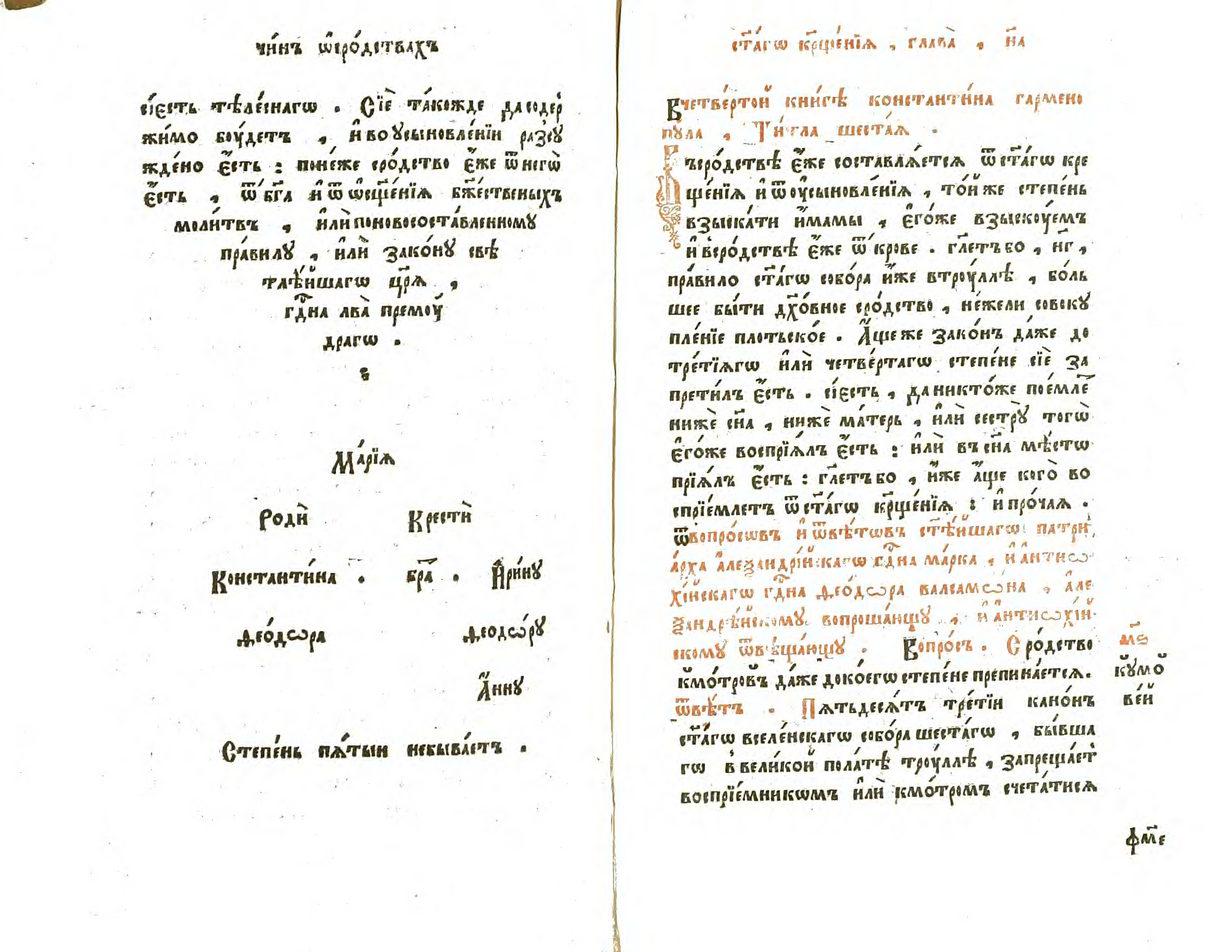 чи́нъ ѡ҆сро́дствахъ
сїе́сть тѣле́снагѡ . Сїѐ та́кожде да содер
жи́мо боу́детъ , и҆ во оу҆сыновле́нїи разсу
жде́но є҆́сть : поне́же сро́дство є҆́же ѿ негѡ̀
є҆́сть , ѿ бг҃а и҆ ѿ ѡ҆сщ҃е́нїѧ бж҃е́ственыхъ
моли́твъ , и҆лѝ по новососта́вленному
пра́вилу , и҆лѝ зако́ну свѣ
тлѣ́йшагѡ цр҃ѧ̀ ,
гдⷭ҇на лва̀ премоу́
драгѡ .
Марі́ѧ
Родѝ Крестѝ
Константи́на . бра́ . И҆ри́ну
Ѳео́дѡра Ѳеодѡ́ру
А҆́нну
Степе́нь пѧ́тыи небыва́етъ .
ст҃а́гѡ крⷳ҇ще́нїѧ , глава̀ , н҃а
В четве́ртой кни́гѣ константи́на гармено
пу́ла , Ти́тла шеста́ѧ .
Въ сро́дствѣ є҆́же составлѧ́етсѧ ѿ ст҃а́гѡ кре
ще́нїѧ и҆ ѿ оу҆сыновле́нїѧ , то́й же степе́нь
взыска́ти и҆́мамы , є҆го́же взыскоу́емъ
и҆ в сро́дствѣ є҆́же ѿ кро́ве . гл҃етъ бо , н҃г ,
пра́вило ст҃а́гѡ собо́ра и҆́же в троу́ллѣ , бо́ль
шее бы́ти дх҃о́вное сро́дство , не́жели совоку
пле́нїе пло́тьское . А҆́ще же зако́нъ да́же до
тре́тїѧгѡ и҆лѝ четве́ртагѡ степе́не сїѐ за
прети́лъ є҆́сть . сїе́сть , да никто́же пое́млетъ
нижѐ сн҃а , нижѐ ма́терь , и҆лѝ сестру̀ тогѡ̀
є҆го́же воспрїѧ́лъ є҆́сть : и҆лѝ въ сн҃а мѣ́стѡ
прїѧ́лъ є҆́сть : гл҃етъ бо , и҆́же а҆́ще кого̀ во
спрїе́млетъ ѿ ст҃а́гѡ крⷳ҇ще́нїѧ : и҆ про́чаѧ .
ѿ вопро́совъ и҆ ѿвѣ́товъ ст҃ѣ́йшагѡ патрї
а́рха а҆леѯандрі́йскагѡ гдⷭ҇на ма́рка , и҆ а҆нтиѡ
хі́йскагѡ гдⷭ҇на ѳео́дѡра валсамѡ́на , але
ѯандрѣ́йскому вопроша́ющу , и҆ а҆нтиѡхі́й
скому ѿвѣща́ющу . Вопро́съ . Сро́дство
кⷹ҇мо́тровъ да́же до ко́егѡ степе́не препина́етсѧ .
ѿвѣ́тъ . Пѧтьдесѧ́тъ тре́тїи кано́нъ
ст҃а́гѡ вселе́нскагѡ собо́ра шеста́гѡ , бы́вша
гѡ в вели́кой пола́тѣ троу́ллѣ , запреща́етъ
воспрїе́мникѡмъ и҆лѝ кⷹ҇мо́тромъ счета́тисѧ
кꙋмо
ве́й
ф҃ме